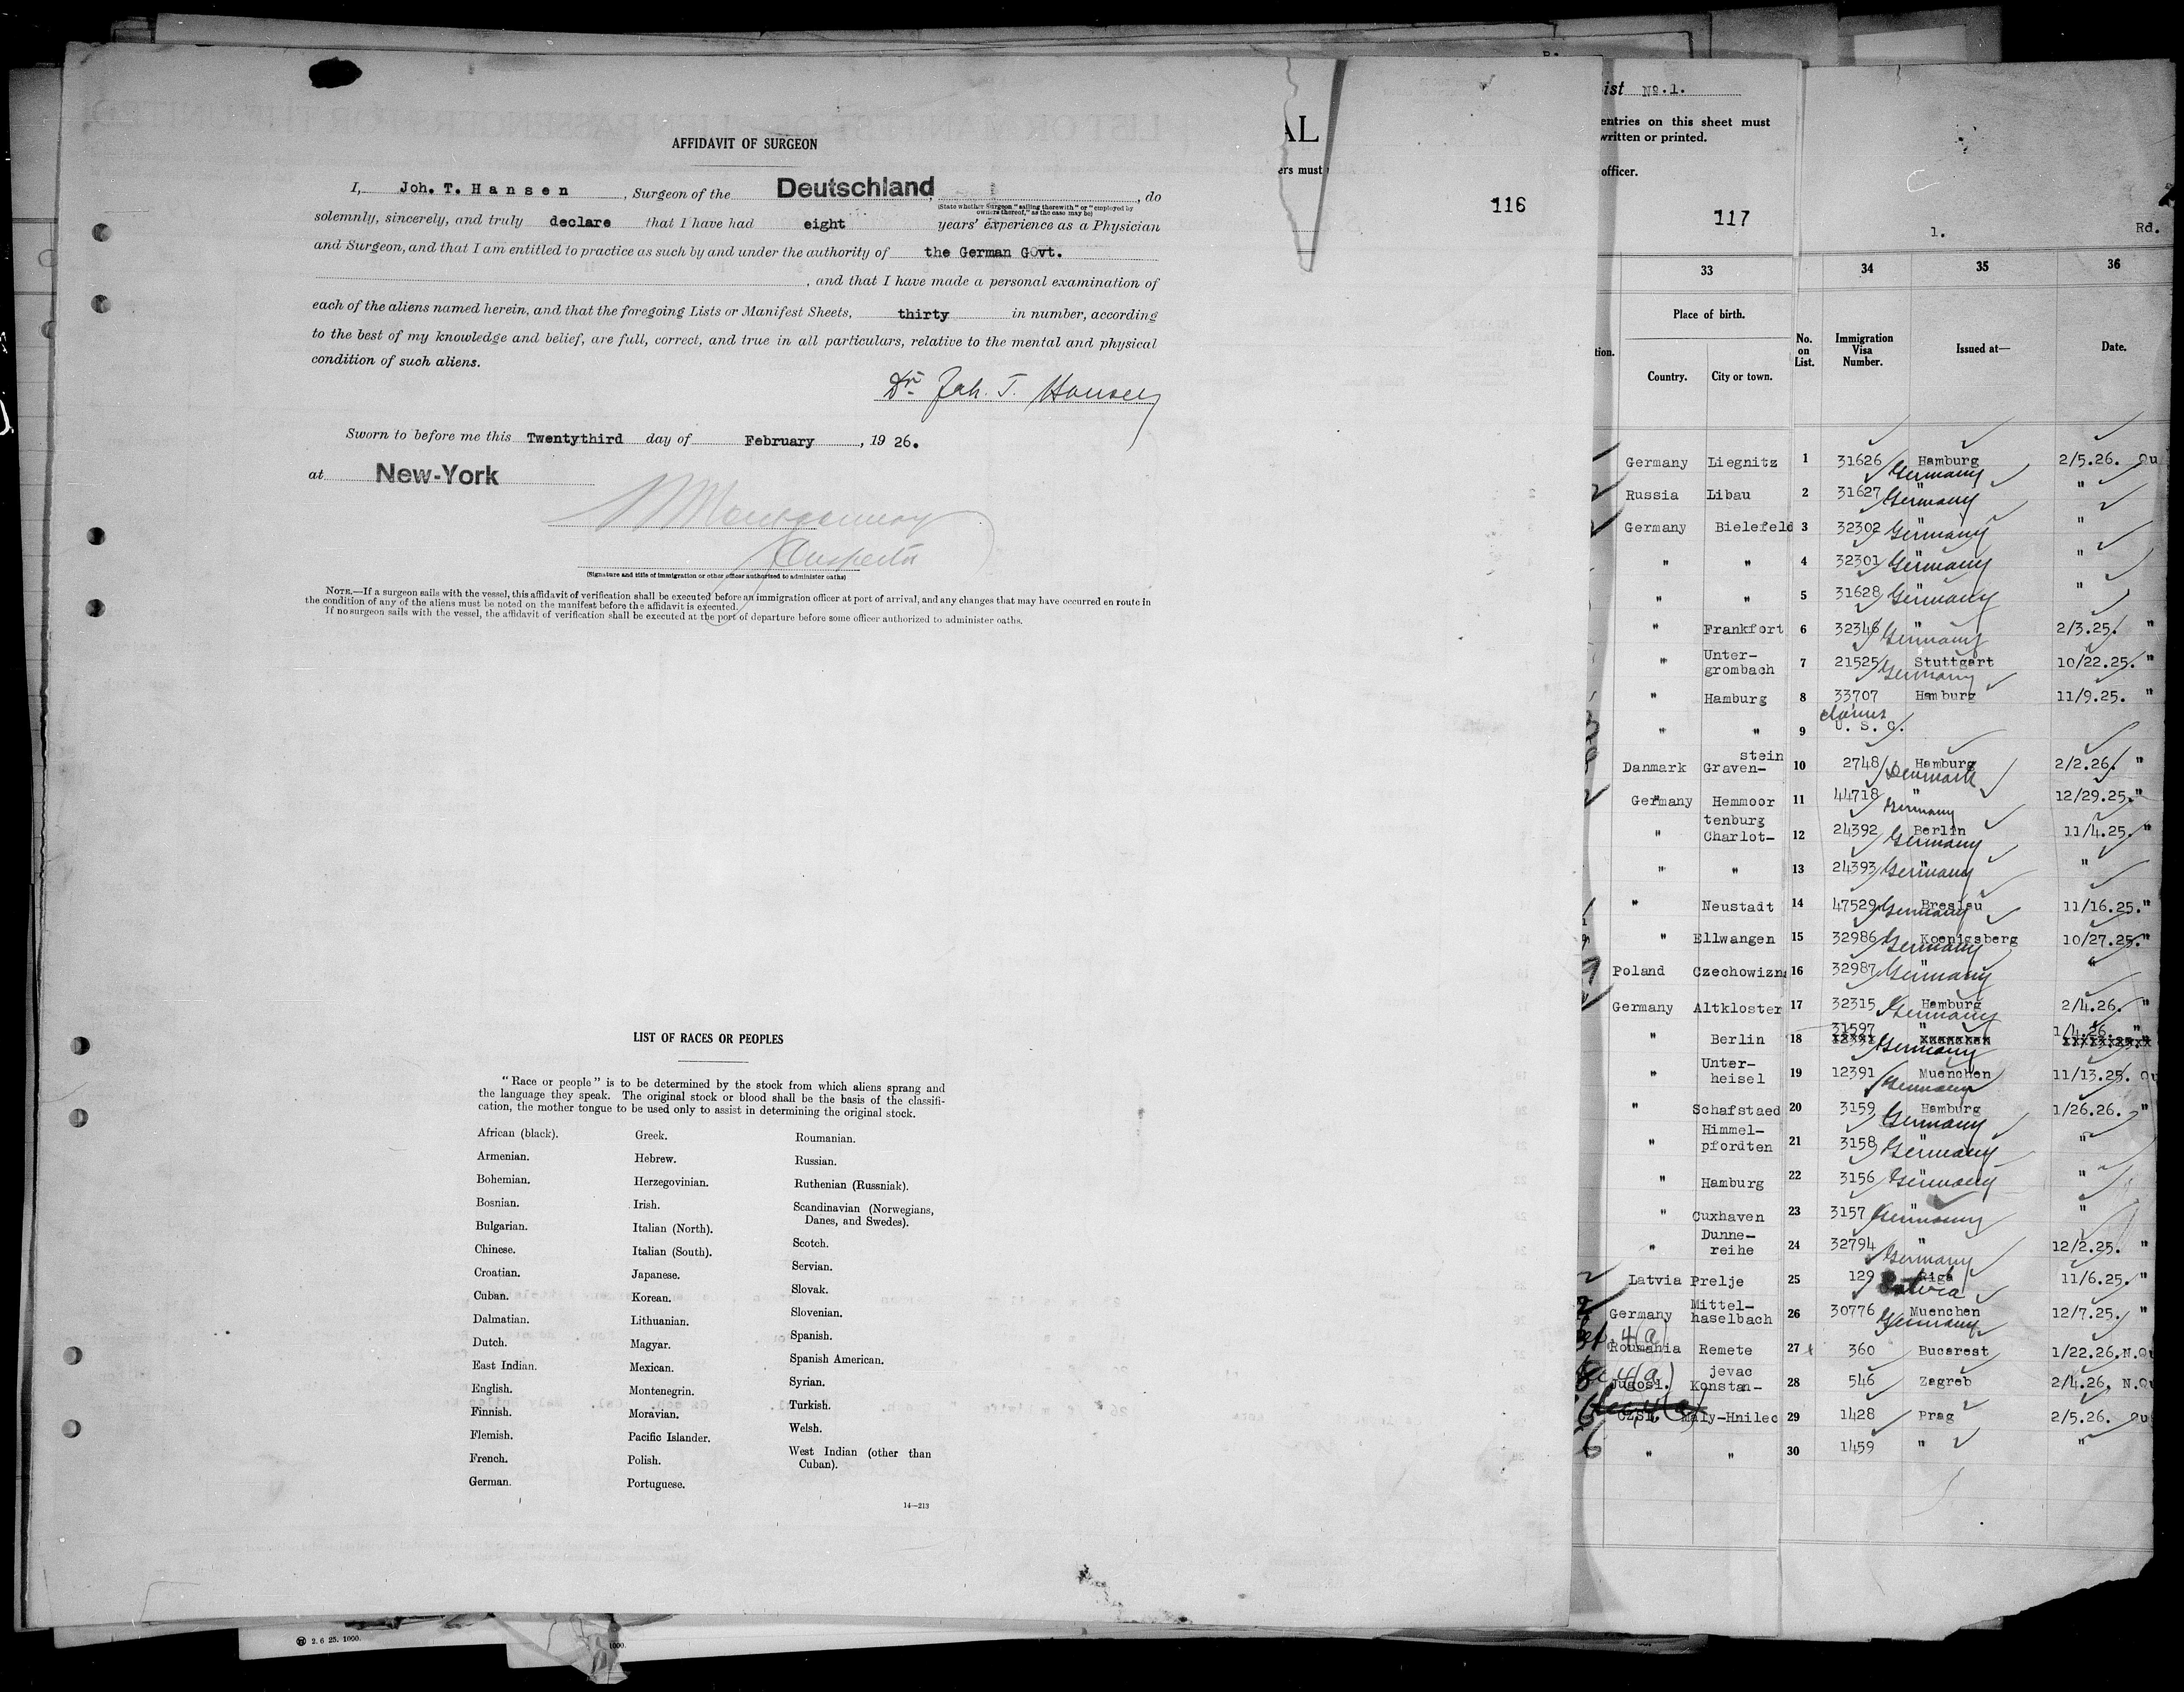 AFFIDAVIT OF SURGEON
I, Joh. T. Hansen, Surgeon of the Deutschland, , do
(State whether Surgeon "sailing therewith" or "employed by
owners thereof," as the case may be)
solemnly, sincerely, and truly declare that I have had eight years' experience as a Physician
and Surgeon, and that I am entitled to practice as such by and under the authority of the German GOvt.
, and that I have made a personal examination of
each of the aliens named herein, and that the foregoing Lists or Manifest Sheets, thirty in number, according
to the best of my knowledge and belief, are full, correct, and true in all particulars, relative to the mental and physical
condition of such aliens.
Dr. Joh. T. Hansen
Sworn to before me this Twentythird day of February, 19 26.
at New-York
Montgomery
Inspector
(Signature and title of immigration or other officer authorized to administer oaths)
NOTE.—If a surgeon sails with the vessel, this affidavit of verification shall be executed before an immigration officer at port of arrival, and any changes that may have occurred en route in
the condition of any of the aliens must be noted on the manifest before the affidavit is executed.
If no surgeon sails with the vessel, the affidavit of verification shall be executed at the port of departure before some officer authorized to administer oaths.
LIST OF RACES OR PEOPLES
"Race or people" is to be determined by the stock from which aliens sprang and
the language they speak. The original stock or blood shall be the basis of the classifi-
cation, the mother tongue to be used only to assist in determining the original stock.
African (black).
Armenian.
Bohemian.
Bosnian.
Bulgarian.
Chinese.
Croatian.
Cuban.
Dalmatian.
Dutch.
East Indian.
English.
Finnish.
Flemish.
French.
German.
Greek.
Hebrew.
Herzegovinian.
Irish.
Italian (North).
Italian (South).
Japanese.
Korean.
Lithuanian.
Magyar.
Mexican.
Montenegrin.
Moravian.
Pacific Islander.
Polish.
Portuguese.
Roumanian.
Russian.
Ruthenian (Russniak).
Scandinavian (Norwegians,
Danes, and Swedes).
Scotch.
Servian.
Slovak.
Slovenian.
Spanish.
Spanish American.
Syrian.
Turkish.
Welsh.
West Indian (other than
Cuban).
14—213
2. 6 25. 1000.
1000.
AL
ers must
116
ist No. 1.
entries on this sheet must
written or printed.
officer.
117
1.
Rd.
33 34 35 36
Place of birth.
tion.
Country. City or town.
No.
on
List.
Immigration
Visa
Number.
Issued at—
Date.
Germany Liegnitz 1 31626 Hamburg Germany 2/5.26. Qu
Russia Libau 2 31627 " Germany "
Germany Bielefeld 3 32302 " Germany "
" " 4 32301 " Germany "
" " 5 31628 " Germany "
" Frankfort 6 32346 " Germany 2/3.25. "
" Unter-
grombach 7 21525 Stuttgart Germany 10/22.25. "
" Hamburg 8 33707 Hamburg 11/9.25. "
" " 9 claims U. S. C.
stein
Danmark Graven- 10 2748 Hamburg Denmark 2/2.26. "
Germany Hemmoor 11 44718 " Germany 12/29.25. "
tenburg
" Charlot- 12 24392 Berlin Germany 11/4.25. "
" " 13 24393 " Germany "
" Neustadt 14 47529 Breslau Germany 11/16.25. "
" Ellwangen 15 32986 Koenigsberg Germany 10/27.25. "
Poland Czechowizn 16 32987 " Germany "
Germany Altkloster 17 32315 Hamburg Germany 2/4.26. "
" Berlin 18 31597 " Germany 1/4.26. "
Unter-
" heisel 19 12391 Muenchen Germany 11/13.25. Qu
" Schafstaed 20 3159 Hamburg Germany 1/26.26. "
Himmel-
" pfordten 21 3158 " Germany "
" Hamburg 22 3156 " Germany "
" Cuxhaven 23 3157 " Germany "
Dunne-
" reihe 24 32794 " Germany 12/2.25. "
Latvia Prelje 25 129 Riga Latvia 11/6.25. "
Mittel-
Germany haselbach 26 30776 Muenchen Germany 12/7.25. "
4(a)
Roumania Remete 27 360 Bucarest 1/22.26. N.Qu
4(a) jevac
Jugosl. Konstan- 28 546 Zagreb 2/4.26. N.Qu
Czsl. Maly-Hnilec 29 1428 Prag 2/5.26. Qu
" " 30 1459 " "